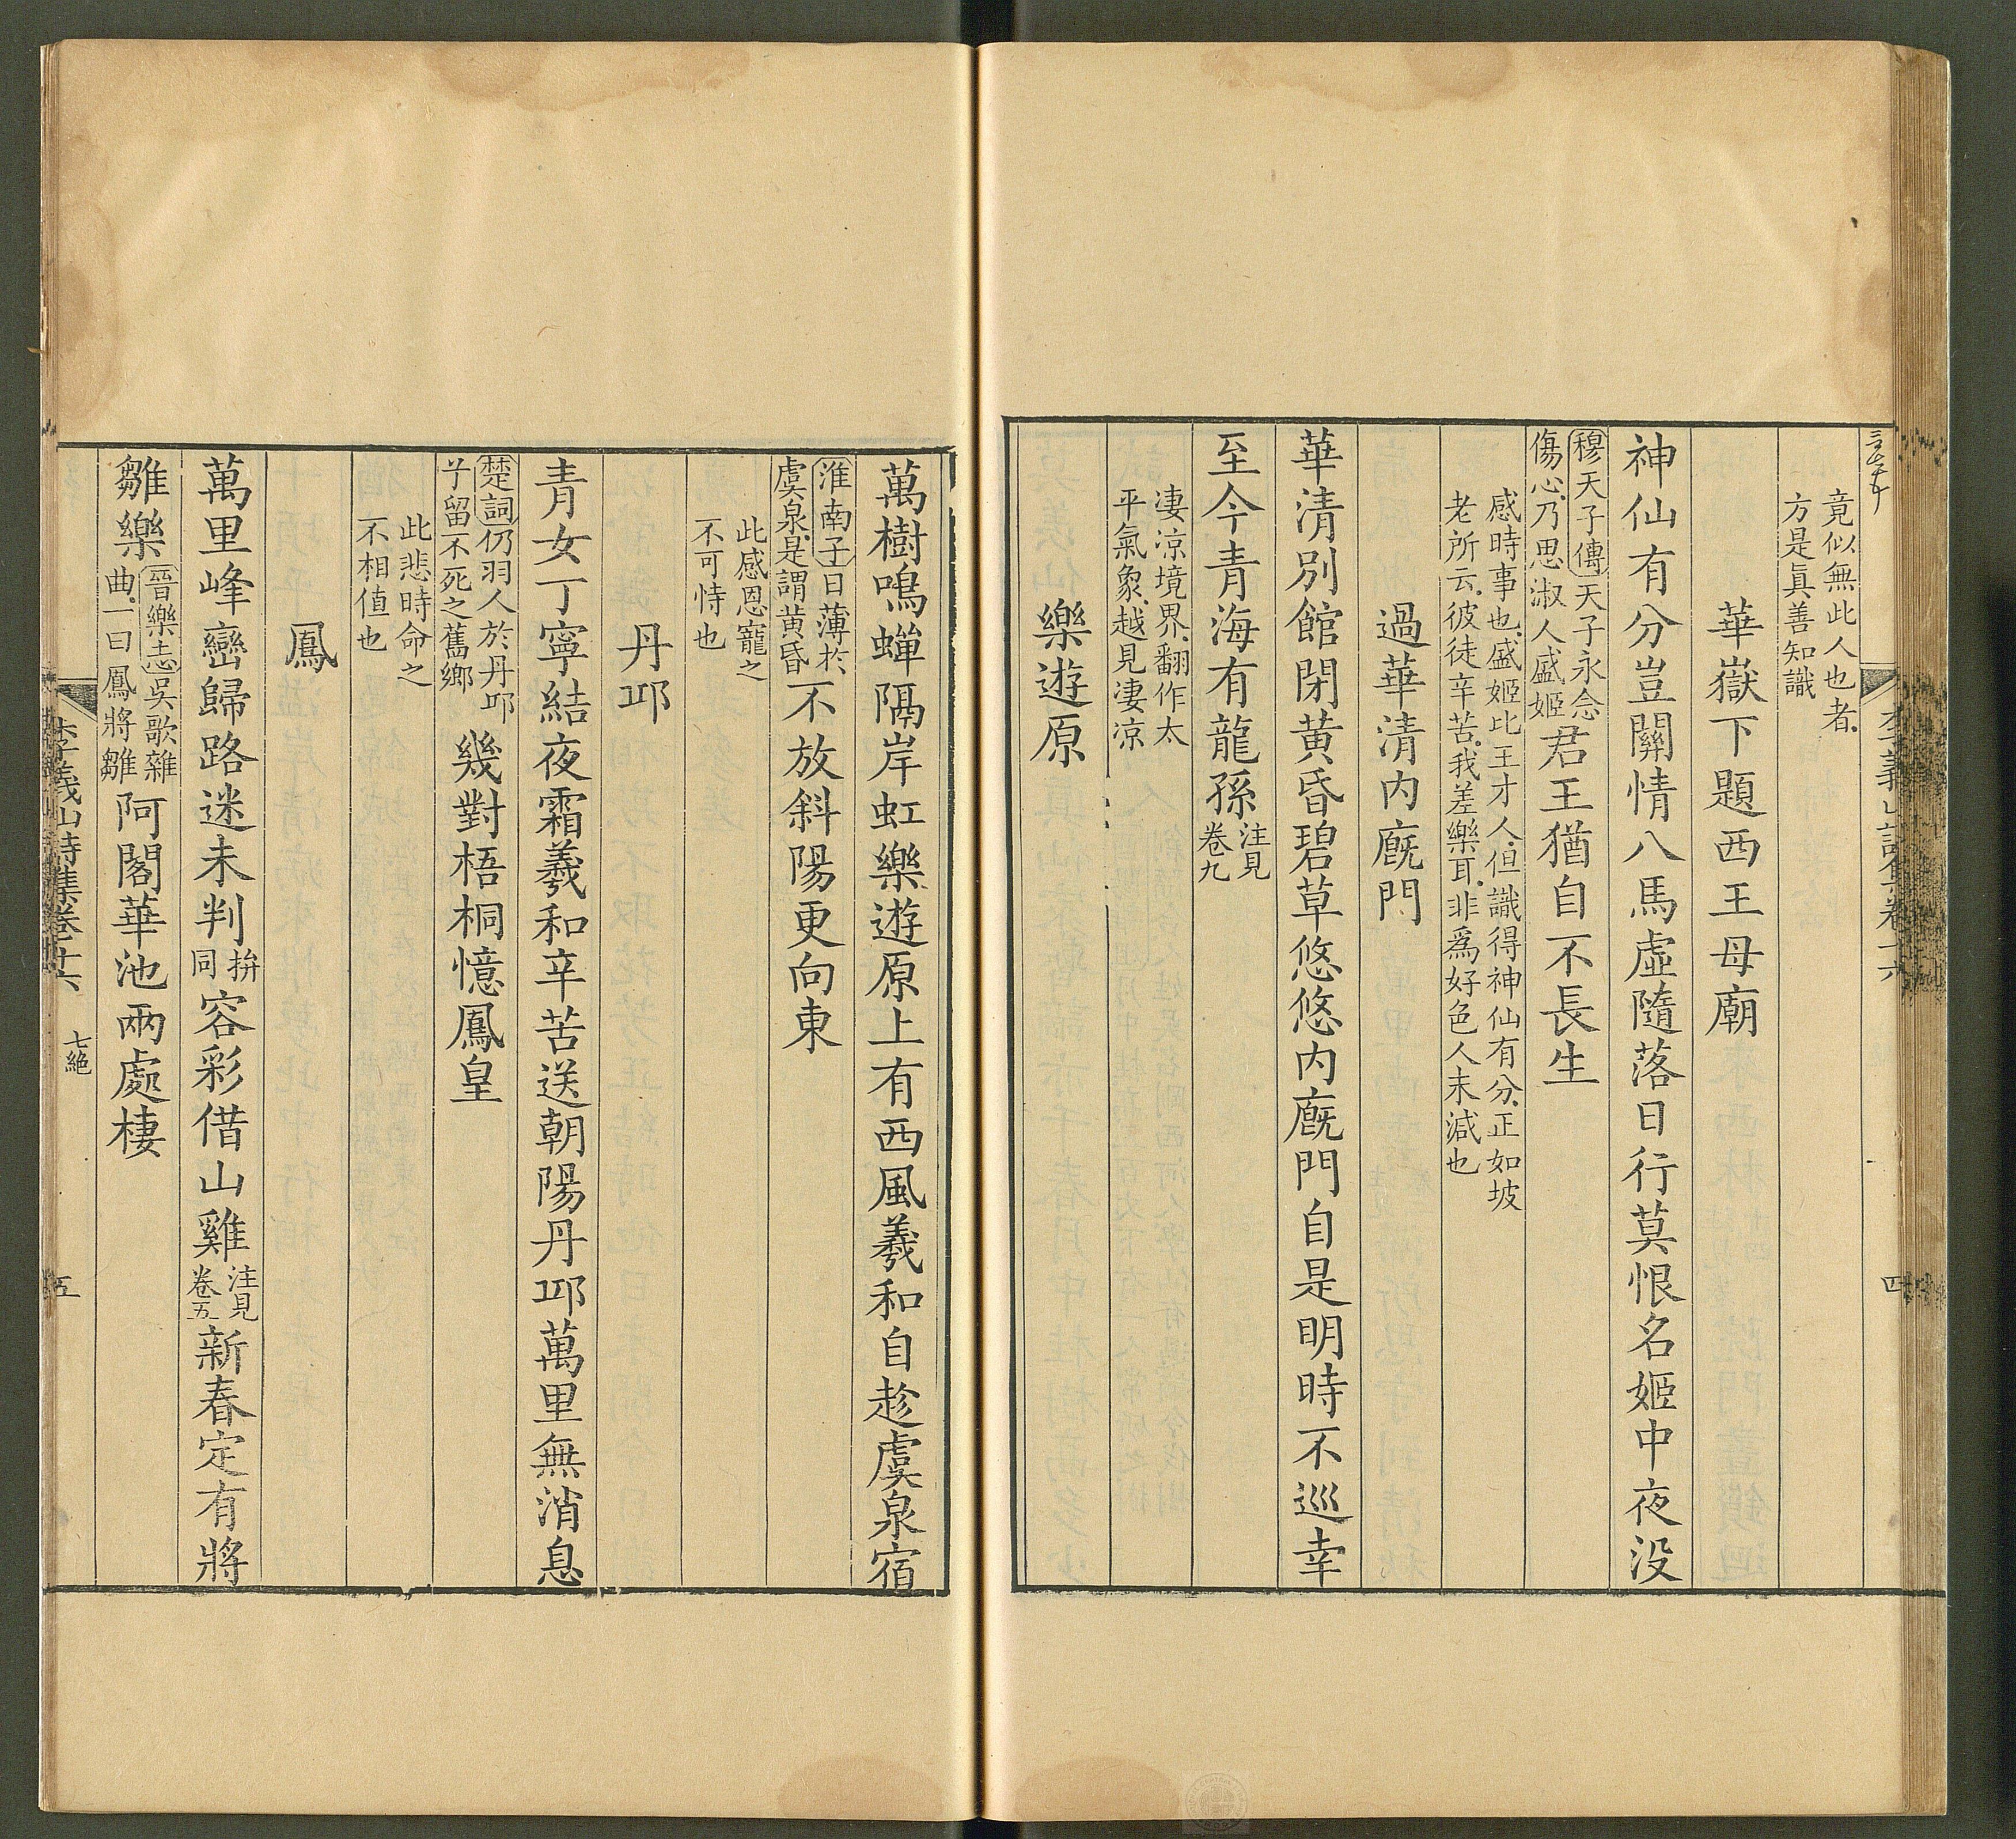 竟似無此人也者
方是眞善知識
華嶽下題西王母廟
神仙有分豈關情八馬虛隨落日行莫恨名姬中夜没
穆天子傳天子永念
傷心乃思淑人盛姬
君王猶自不長生
感時事也盛姬比王才人但識得神仙有分正如坡
老所云彼徒辛苦我差樂耳非爲好色人末減也
過華清内廐門
華清別館閉黄昏碧草悠悠内廐門自是明時不巡幸
至今青海有龍孫
注見
卷九
凄凉境界翻作太
平氣象越見凄凉
樂遊原
萬樹鳴蟬隔岸虹樂遊原上有西風羲和自趁虞泉宿
淮南子日薄於
虞泉是謂黄昏
不放斜陽更向東
此感恩寵之
不可恃也
丹邱
青女丁寧結夜霜羲和辛苦送朝陽丹邱萬里無消息
楚詞仍羽人於丹邱
兮留不死之舊鄉
幾對梧桐憶鳳皇
此悲時命之
不相值也
鳳
萬里峰巒歸路迷未判
拚
同
容彩借山雞
注見
卷五
新春定有將
雛樂
晉樂志吳歌雜
曲一曰鳳將雛
阿閣華池兩處棲
李義山詩集卷十六 七絶 五